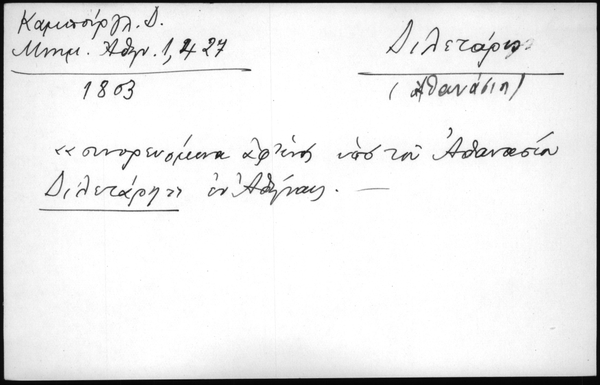 Καμπούρογλ. Δ.
Μνημ. Αθην. 1, 427
1803
Διλετάρης
(Αθανάσιος)
«συνορευόμενα ἀφ' ἑνὸς ὑπὸ τοῦ Ἀθανασίου
Διλετάρη» ἐν Ἀθήναις. —